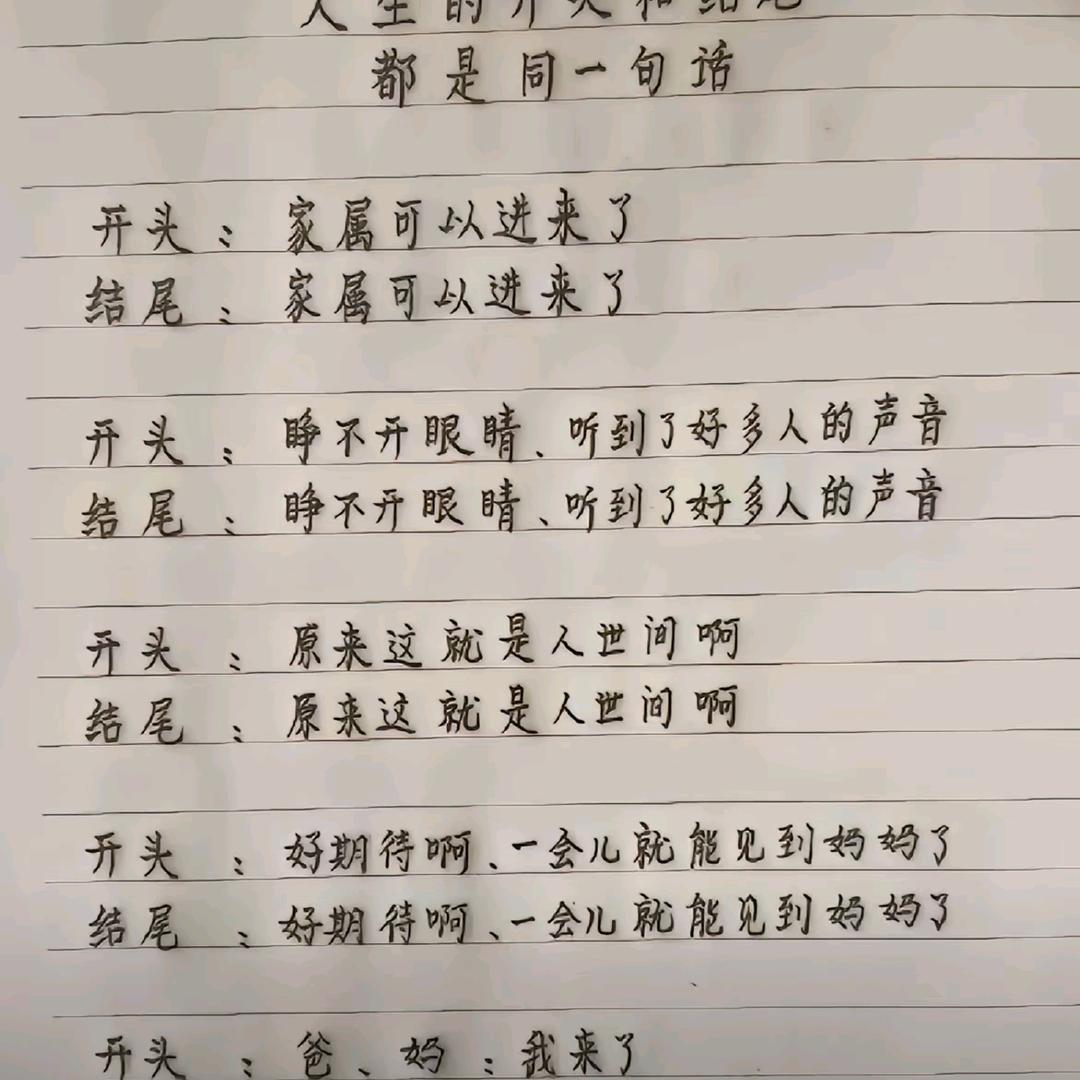 人生的开头和结尾
都是同一句话
开头：家属可以进来了
结尾：家属可以进来了
开头：睁不开眼睛、听到了好多人的声音
结尾：睁不开眼睛、听到了好多人的声音
开头：原来这就是人世间啊
结尾：原来这就是人世间啊
开头：好期待啊、一会儿就能见到妈妈了
结尾：好期待啊、一会儿就能见到妈妈了
开头：爸、妈：我来了